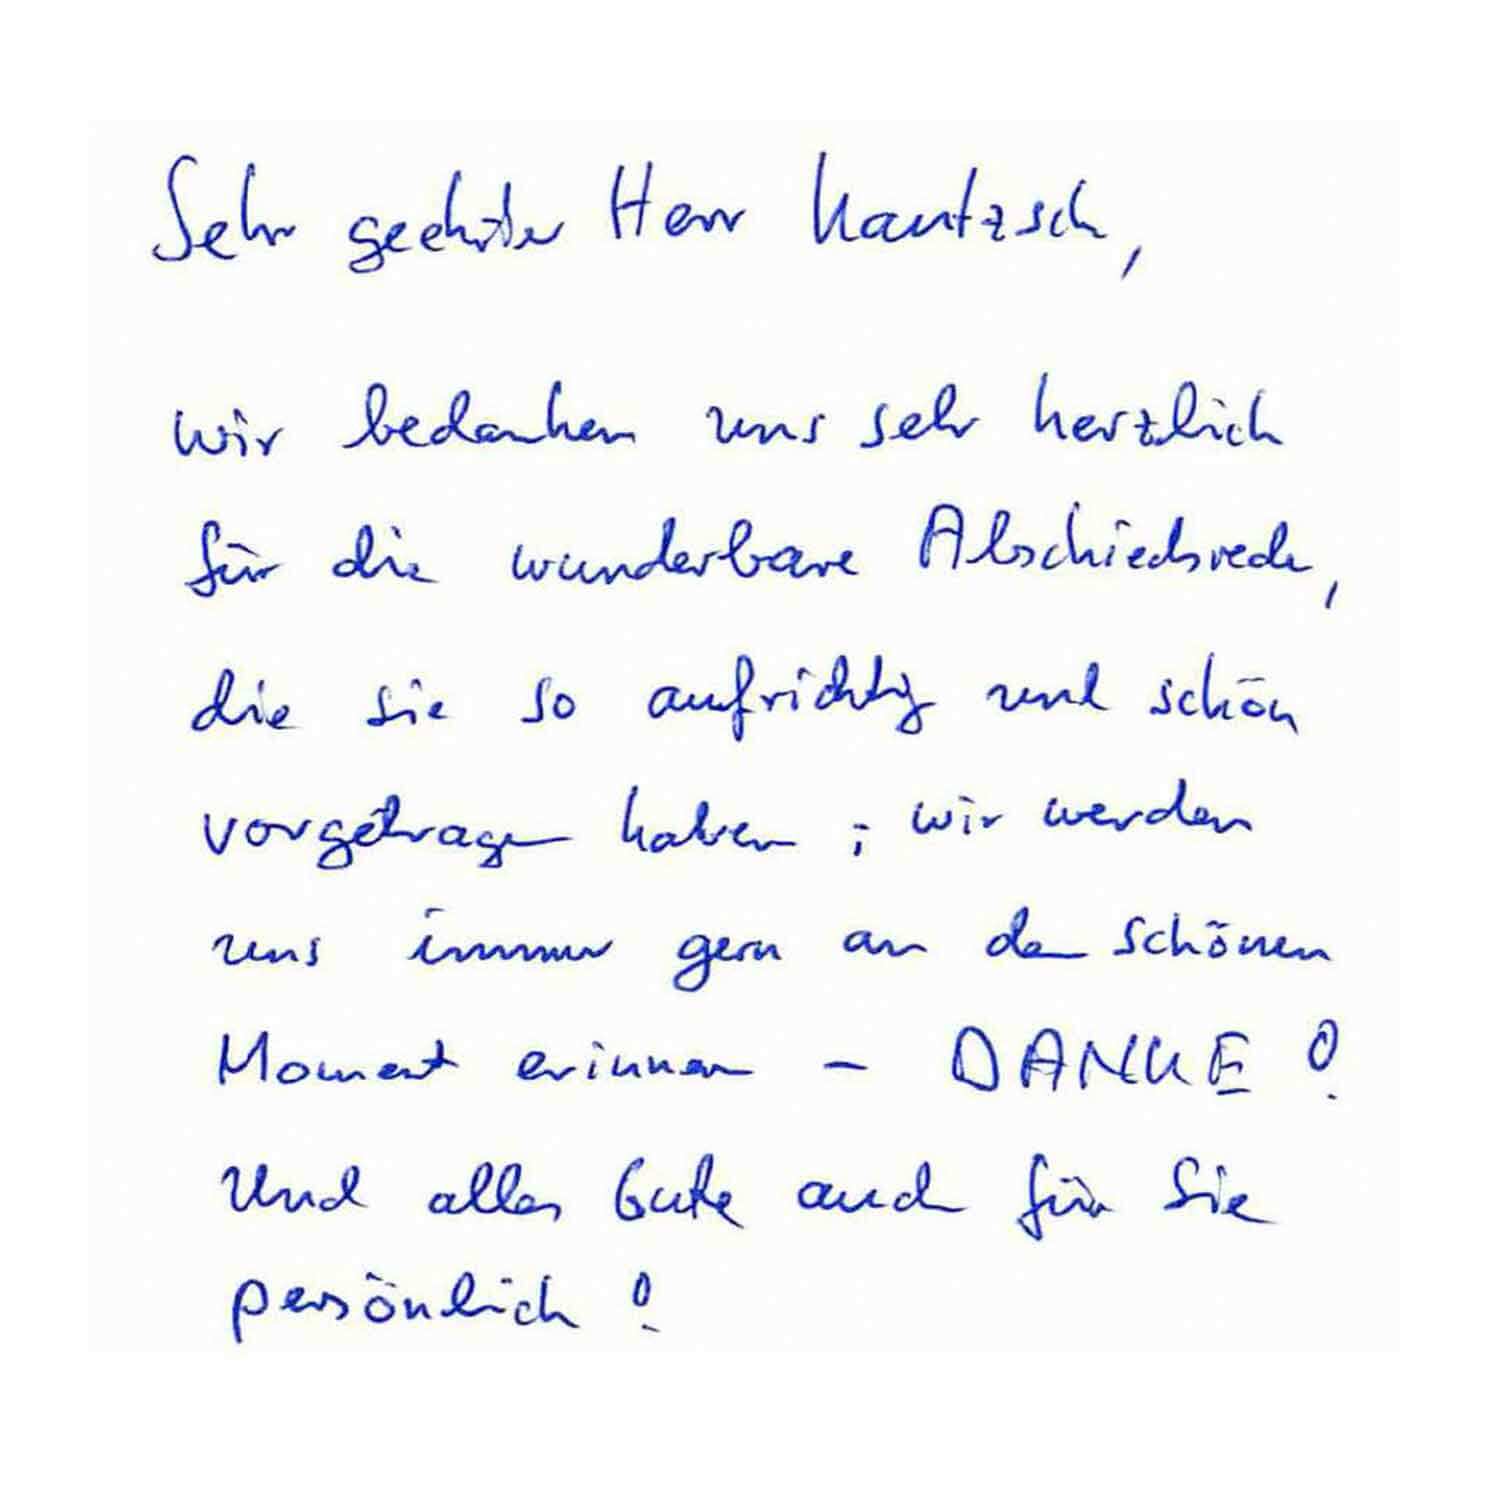 Sehr geehrter Herr Kautzsch,
wir bedanken uns sehr herzlich
für die wunderbare Abschiedsrede,
die sie so aufrichtig und schön
vorgetragen haben ; wir werden
uns immer gern an den schönen
Moment erinnern – DANKE !
Und alles Gute auch für Sie
persönlich !